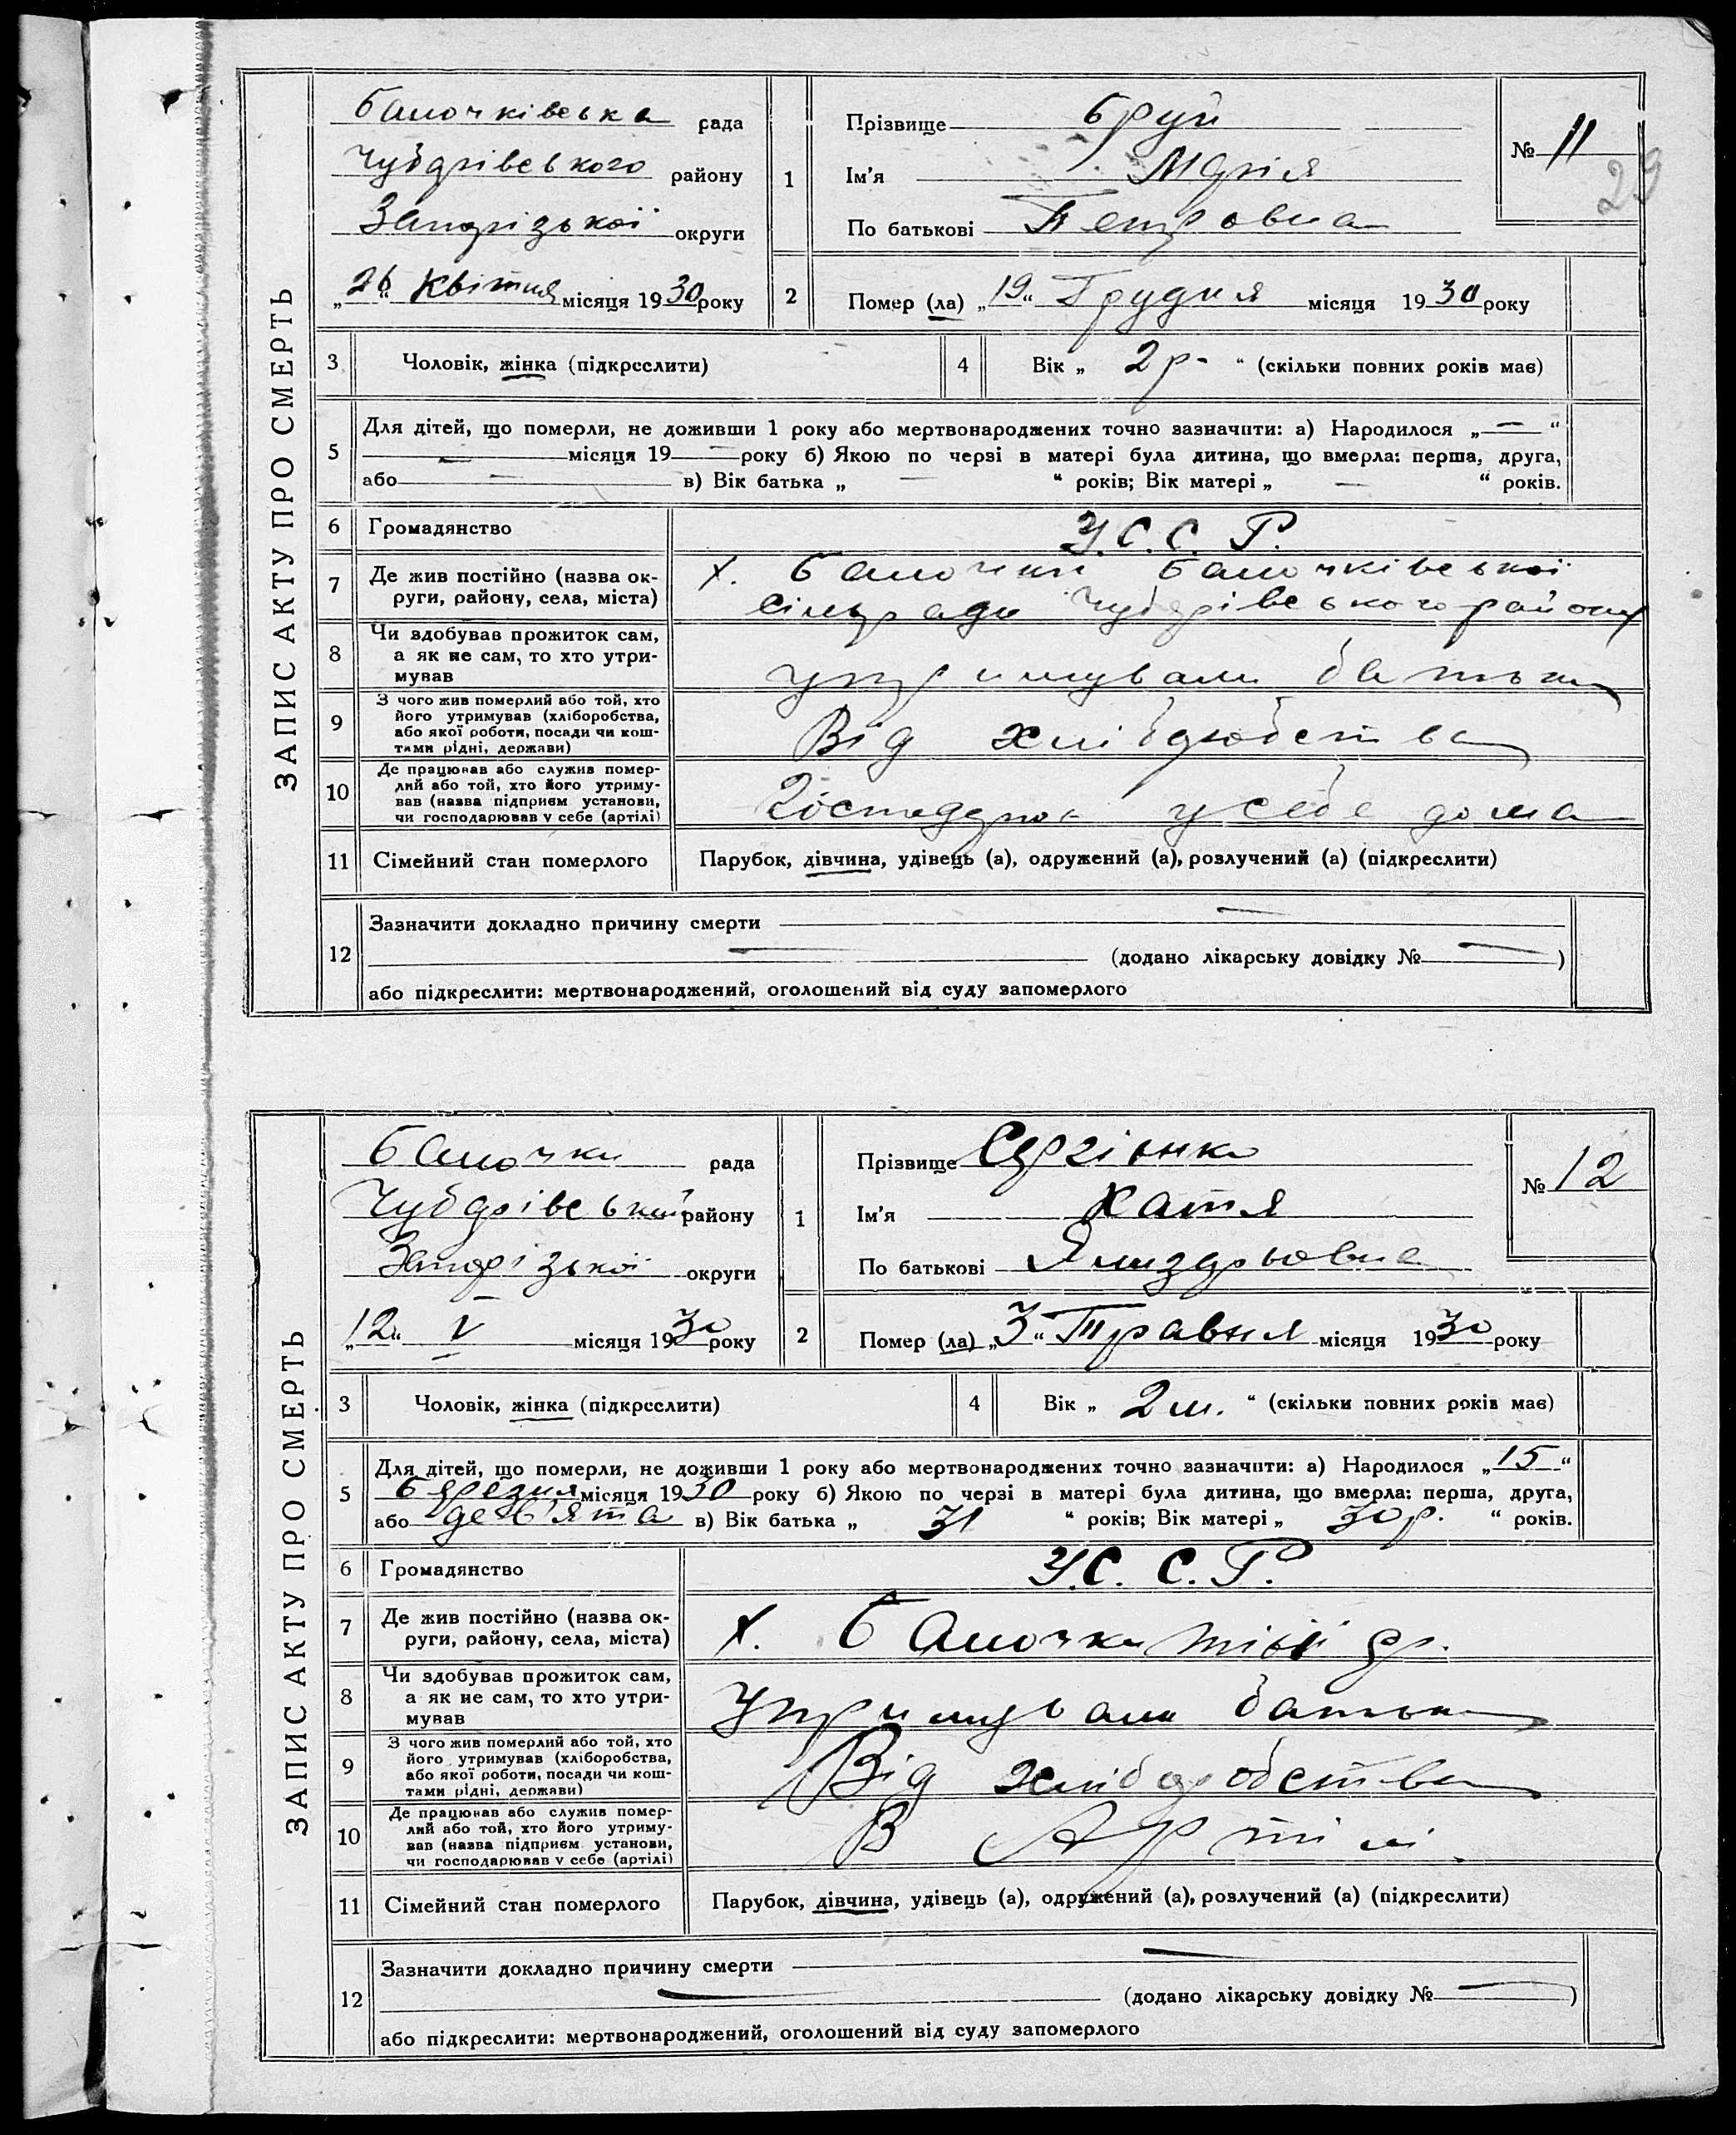 ЗАПИС АКТУ ПРО СМЕРТЬ
Балочківська рада
Чубарівського району
Запорізької округи
„26“ Квітня місяця 1930 року
1
Прізвище Бруй
Ім'я Марія
По батькові Петровна
№ 11
29
2
Помер (ла) „19“ Грудня місяця 1930 року
3
Чоловік, жінка (підкреслити)
4
Вік „ 2 р- “ (скільки повних років має)
5
Для дітей, що померли, не доживши 1 року або мертвонароджених точно зазначити: а) Народилося „ — “
— місяця 19 — року б) Якою по черзі в матері була дитина, що вмерла: перша, друга,
або — в) Вік батька „ — “ років; Вік матері „ — “ років.
6
Громадянство
У.С.С.Р.
7
Де жив постійно (назва ок-
руги, району, села, міста)
х. Балочки Балочківської
сільради Чубарівського району
8
Чи здобував прожиток сам,
а як не сам, то хто утри-
мував
утримували батьки
9
З чого жив померлий або той, хто
його утримував (хліборобства,
або якої роботи, посади чи кош-
тами рідні, держави)
Від хліборобства
10
Де працював або служив помер-
лий або той, хто його утриму-
вав (назва підприєм установи,
чи господарював у себе (артілі)
у себе дома
11
Сімейний стан померлого
Парубок, дівчина, удівець (а), одружений (а), розлучений (а) (підкреслити)
12
Зазначити докладно причину смерти —
— (додано лікарську довідку № — )
або підкреслити: мертвонароджений, оголошений від суду запомерлого
ЗАПИС АКТУ ПРО СМЕРТЬ
Балочки рада
Чубарівський району
Запорізької округи
„12“ V місяця 1930 року
1
Прізвище Сергіенко
Ім'я Катя
По батькові
№ 12
2
Помер (ла) „3“ Травня місяця 1930 року
3
Чоловік, жінка (підкреслити)
4
Вік „ 2 м. “ (скільки повних років має)
5
Для дітей, що померли, не доживши 1 року або мертвонароджених точно зазначити: а) Народилося „15“
Березня місяця 1930 року б) Якою по черзі в матері була дитина, що вмерла: перша, друга,
або дев'ята в) Вік батька „ 31 “ років; Вік матері „ 30 р. “ років.
6
Громадянство
У.С.С.Р.
7
Де жив постійно (назва ок-
руги, району, села, міста)
х. Балочки
8
Чи здобував прожиток сам,
а як не сам, то хто утри-
мував
Утримували батьки
9
З чого жив померлий або той, хто
його утримував (хліборобства,
або якої роботи, посади чи кош-
тами рідні, держави)
Від хліборобства
10
Де працював або служив помер-
лий або той, хто його утриму-
вав (назва підприєм установи,
чи господарював у себе (артілі)
В Артілі
11
Сімейний стан померлого
Парубок, дівчина, удівець (а), одружений (а), розлучений (а) (підкреслити)
12
Зазначити докладно причину смерти —
— (додано лікарську довідку № — )
або підкреслити: мертвонароджений, оголошений від суду запомерлого